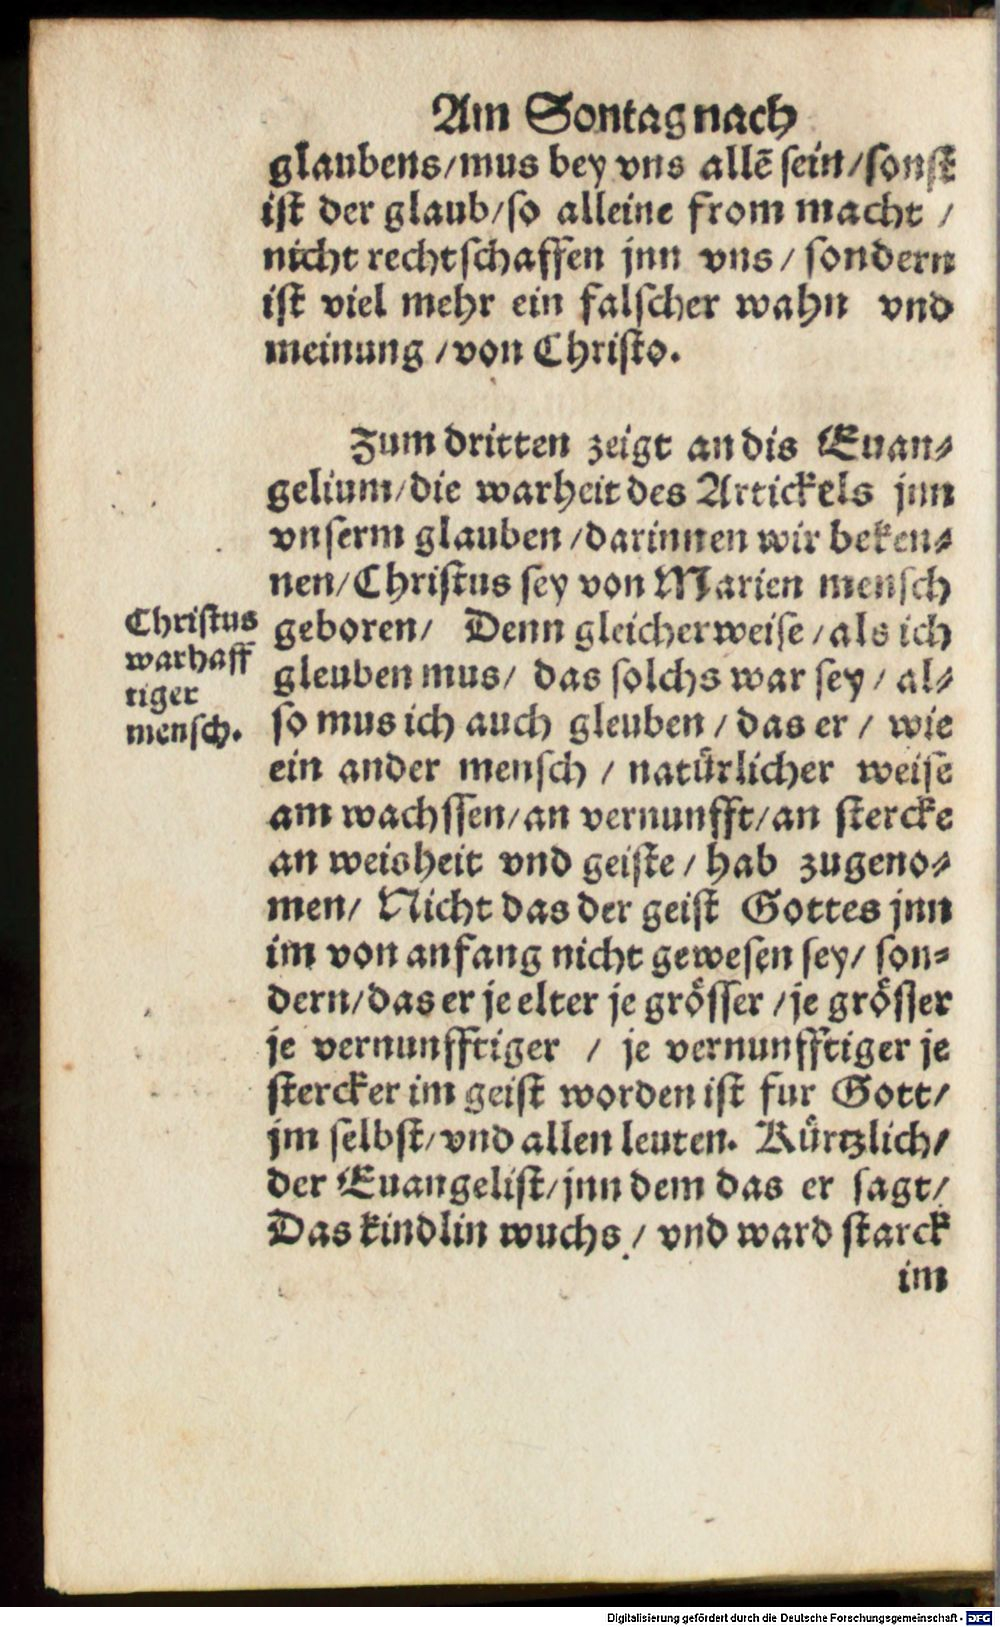 Am Sontag nach
glaubens/mus bey vns allē sein/sonst
ist der glaub/so alleine from macht /
nicht rechtschaffen jnn vns / sondern
ist viel mehr ein falscher wahn vnd
meinung /von Christo.
Zum dritten zeigt an dis Euan-
gelium/die warheit des Artickels jnn
vnserm glauben /darinnen wir beken-
nen/Christus sey von Marien mensch
geboren/ Denn gleicherweise /als ich
gleuben mus/ das solchs war sey / al-
so mus ich auch gleuben / das er / wie
ein ander mensch / natuͤrlicher weise
am wachssen/an vernunfft/an stercke
an weisheit vnd geiste / hab zugeno-
men/ Nicht das der geist Gottes jnn
im von anfang nicht gewesen sey/ son-
dern/das er je elter je groͤsser /je groͤsser
je vernunfftiger / je vernunfftiger je
stercker im geist worden ist fur Gott/
jm selbst/vnd allen leuten. Kuͤrtzlich/
der Euangelist/jnn dem das er sagt/
Das kindlin wuchs / vnd ward starck
im
Christus
warhaff
tiger
mensch.
Digitalisierung gefördert durch die Deutsche Forschungsgemeinschaft - DFG